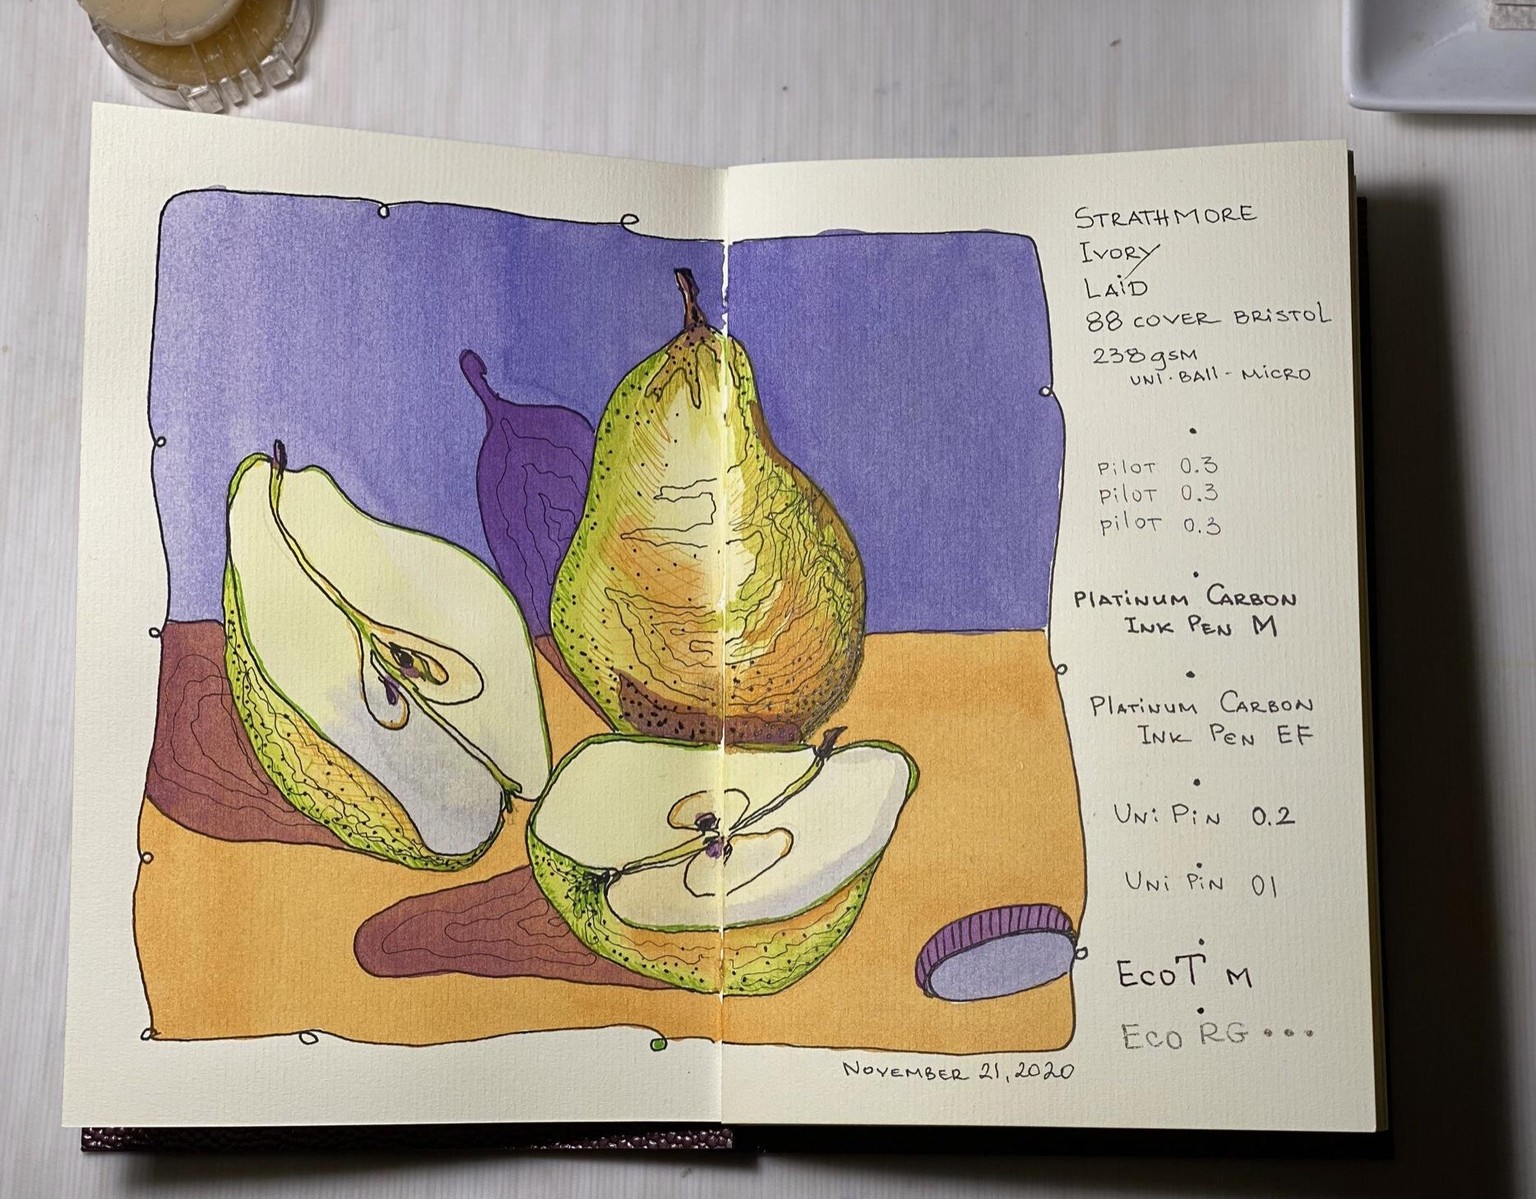 STRATHMORE
IVORY
LAID
88 COVER BRISTOL
238 gsm
UNI-BALL-MICRO
PILOT 0.3
PILOT 0.3
PILOT 0.3
PLATINUM CARBON
INK PEN M
PLATINUM CARBON
INK PEN EF
UNI PIN 0.2
UNI PIN 01
ECOT M
ECO RG...
NOVEMBER 21, 2020